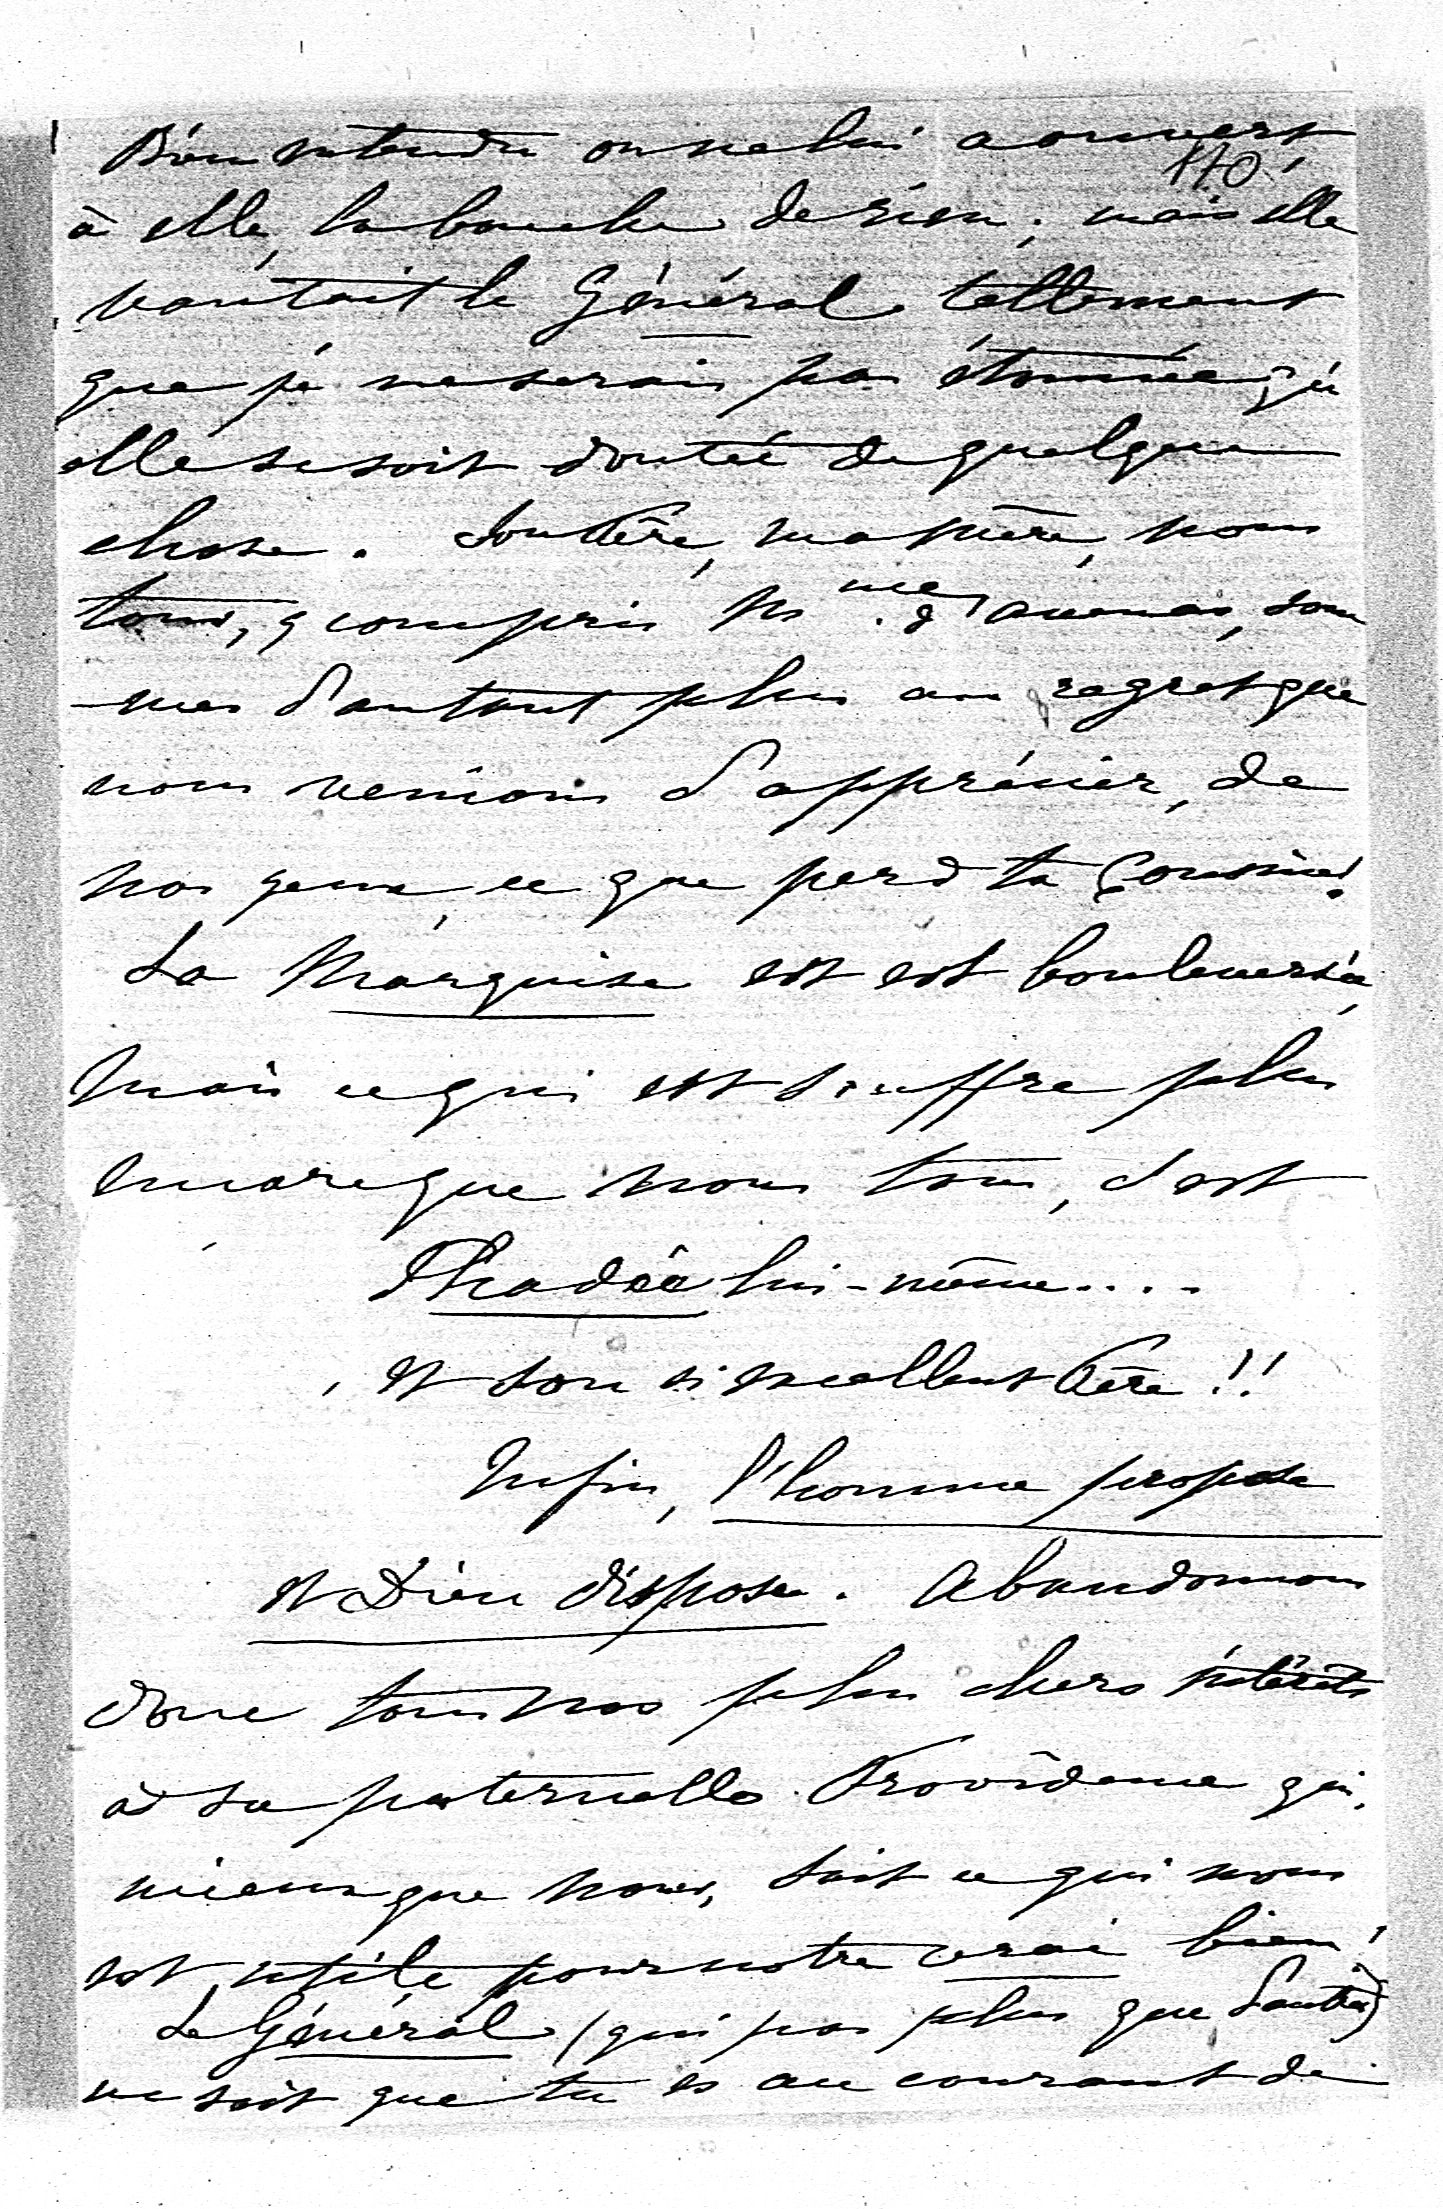 Bien entendu on ne lui a ouvert
110
à elle, la bouche de rien ; mais elle
vantait le Général tellement
que je ne serais pas étonnée qu'
elle se soit doutée de quelque
chose. Ton Père, ma mère, nous
tous, y compris Mme d'Avenas, som
-mes d'autant plus au regret que
nous venions d'apprécier, de
nos yeux, ce que perd ta Cousine !
La Marquise est est bouleversée,
Mais ce qui est souffre plus
encore que nous tous, c'est
Thadée lui-même....
et son si excellent Père !!
Enfin, l'homme propose
et Dieu dispose. Abandonnons
donc tous nos plus chers intérêts
à sa paternelle Providence qui,
mieux que nous, sait ce qui nous
est utile pour notre vrai bien !
Le Général (qui pas plus que d'autres)
ne sait que tu es au courant de